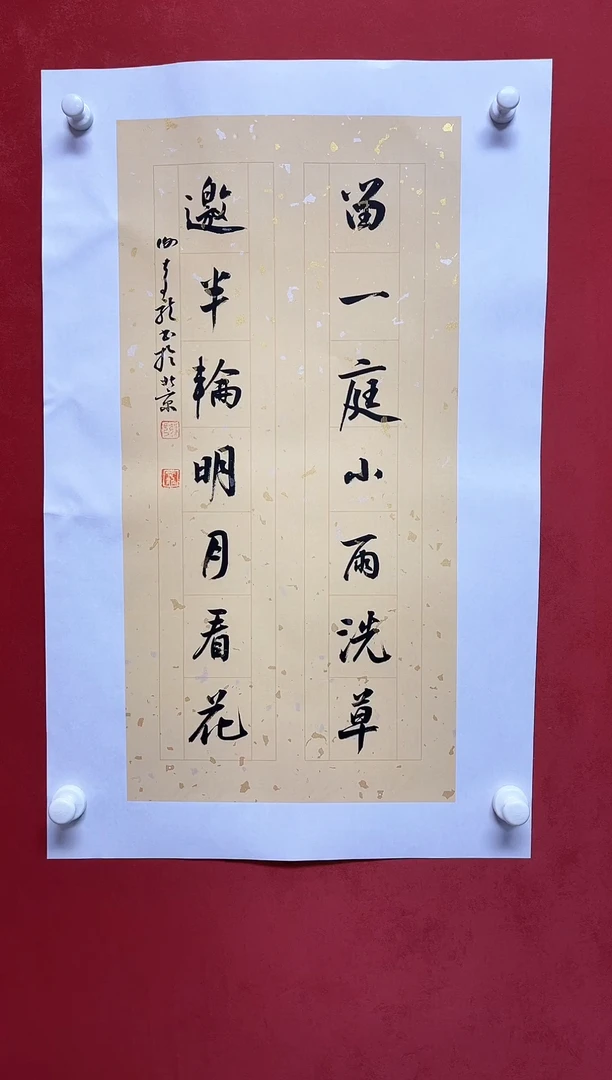 留一庭小雨洗草
邀半輪明月看花
书於北京